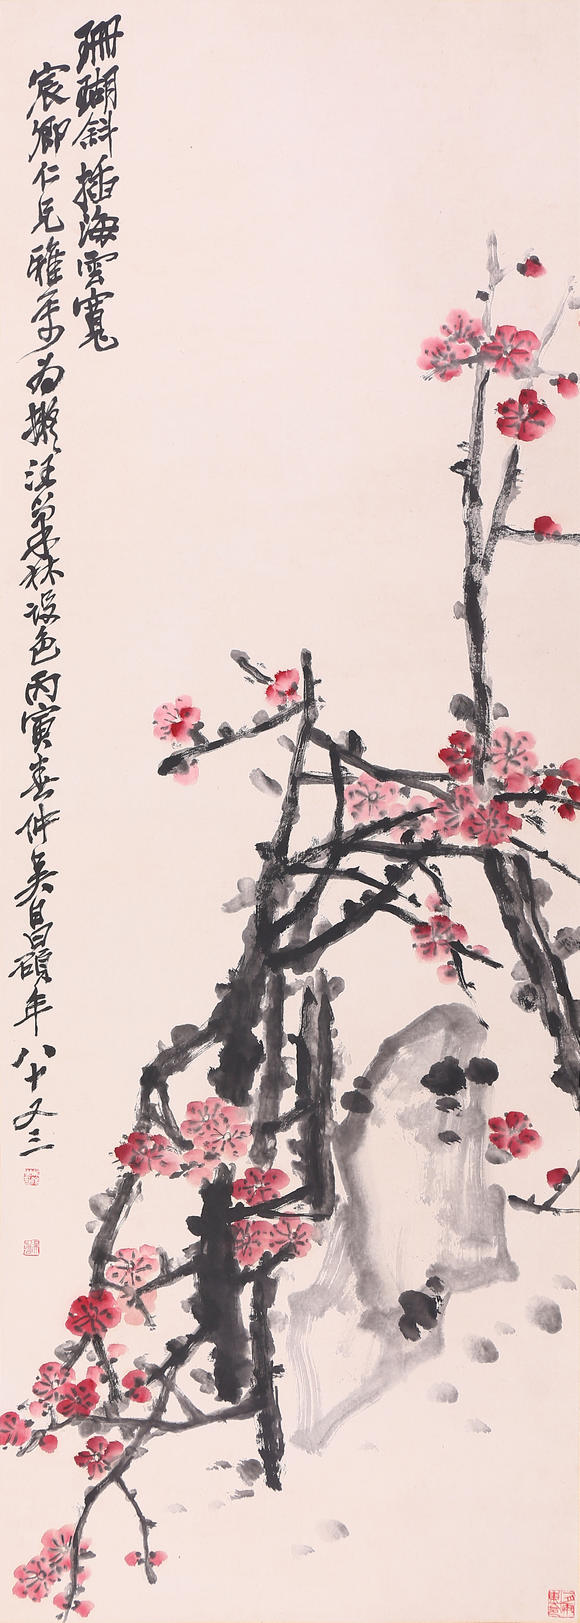 珊瑚斜插海雲寬
宸卿仁兄雅為擬汪巢林設色丙寅春仲吳昌碩年八十又三